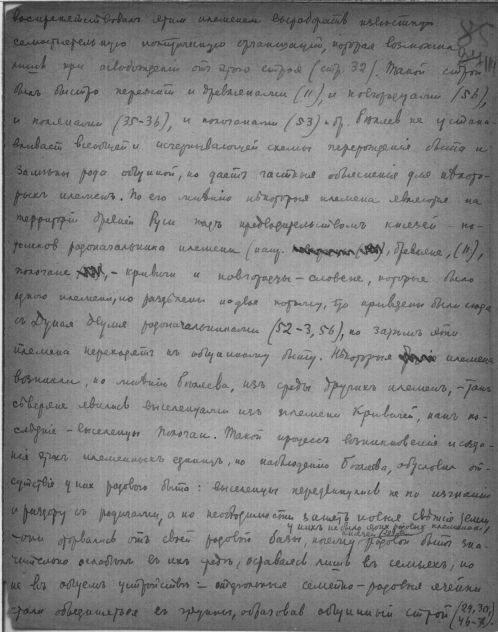 воспрепятствовало этим племенам выработать известную
самостоятельную политическую организацию, которая возможна
лишь при освобождении отъ этого строя (стр. 32). Такой строй
былъ быстро пережитъ и древлянами (11), и новгородцами (56),
и полянами (35-36), и полочанами (53) и др. Бѣляев не устана-
вливаетъ всеобщей и исчерпывающей схемы перерожденія быта и
замѣны рода общиной, но даетъ частныя объясненія для нѣкото-
рыхъ племенъ. По его мнѣнію нѣкоторыя племена явились на
территорію древней Руси подъ предводительствомъ князей - по-
томковъ родоначальника племени (напр. древляне, (11),
полочане - кривичи и новгородцы - словене, которые были
одного племени, но раздѣлены на двое потому, что приведены были сюда
съ Дуная двумя родоначальниками (52-3, 56), но затѣмъ эти
племена переходятъ къ общинному быту. Нѣкоторыя племена
возникли, по мнѣнію Бѣляева, изъ среды другихъ племенъ, - такъ
сѣверяне явились выселенцами изъ племени Кривичей, какъ по-
слѣдніе - выселенцы Полочан. Такой процессъ возникновенія и созда-
нія этихъ племенныхъ единицъ, по наблюденію Бѣляева, обусловил от-
сутствіе у них родового быта: выселенцы передвинулись не по изгнанію
и раздору съ родичами, а по необходимости занять новыя свѣжія земли
у нихъ не было своих родових племенных,
князей
- они оторвались отъ своей родовой базы, поему родовой бытъ зна-
чительно ослабѣлъ въ ихъ средѣ, оставаясь лишь въ семьяхъ, но
не въ общемъ устройствѣ - отдѣльныя семейно-родовыя ячейки
стали объединяться въ группы, образовав общинный строй (29, 30,